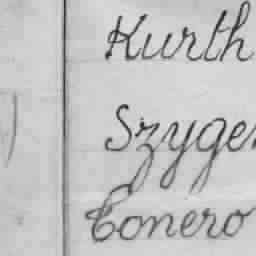 Kurth
Szyge
Conero